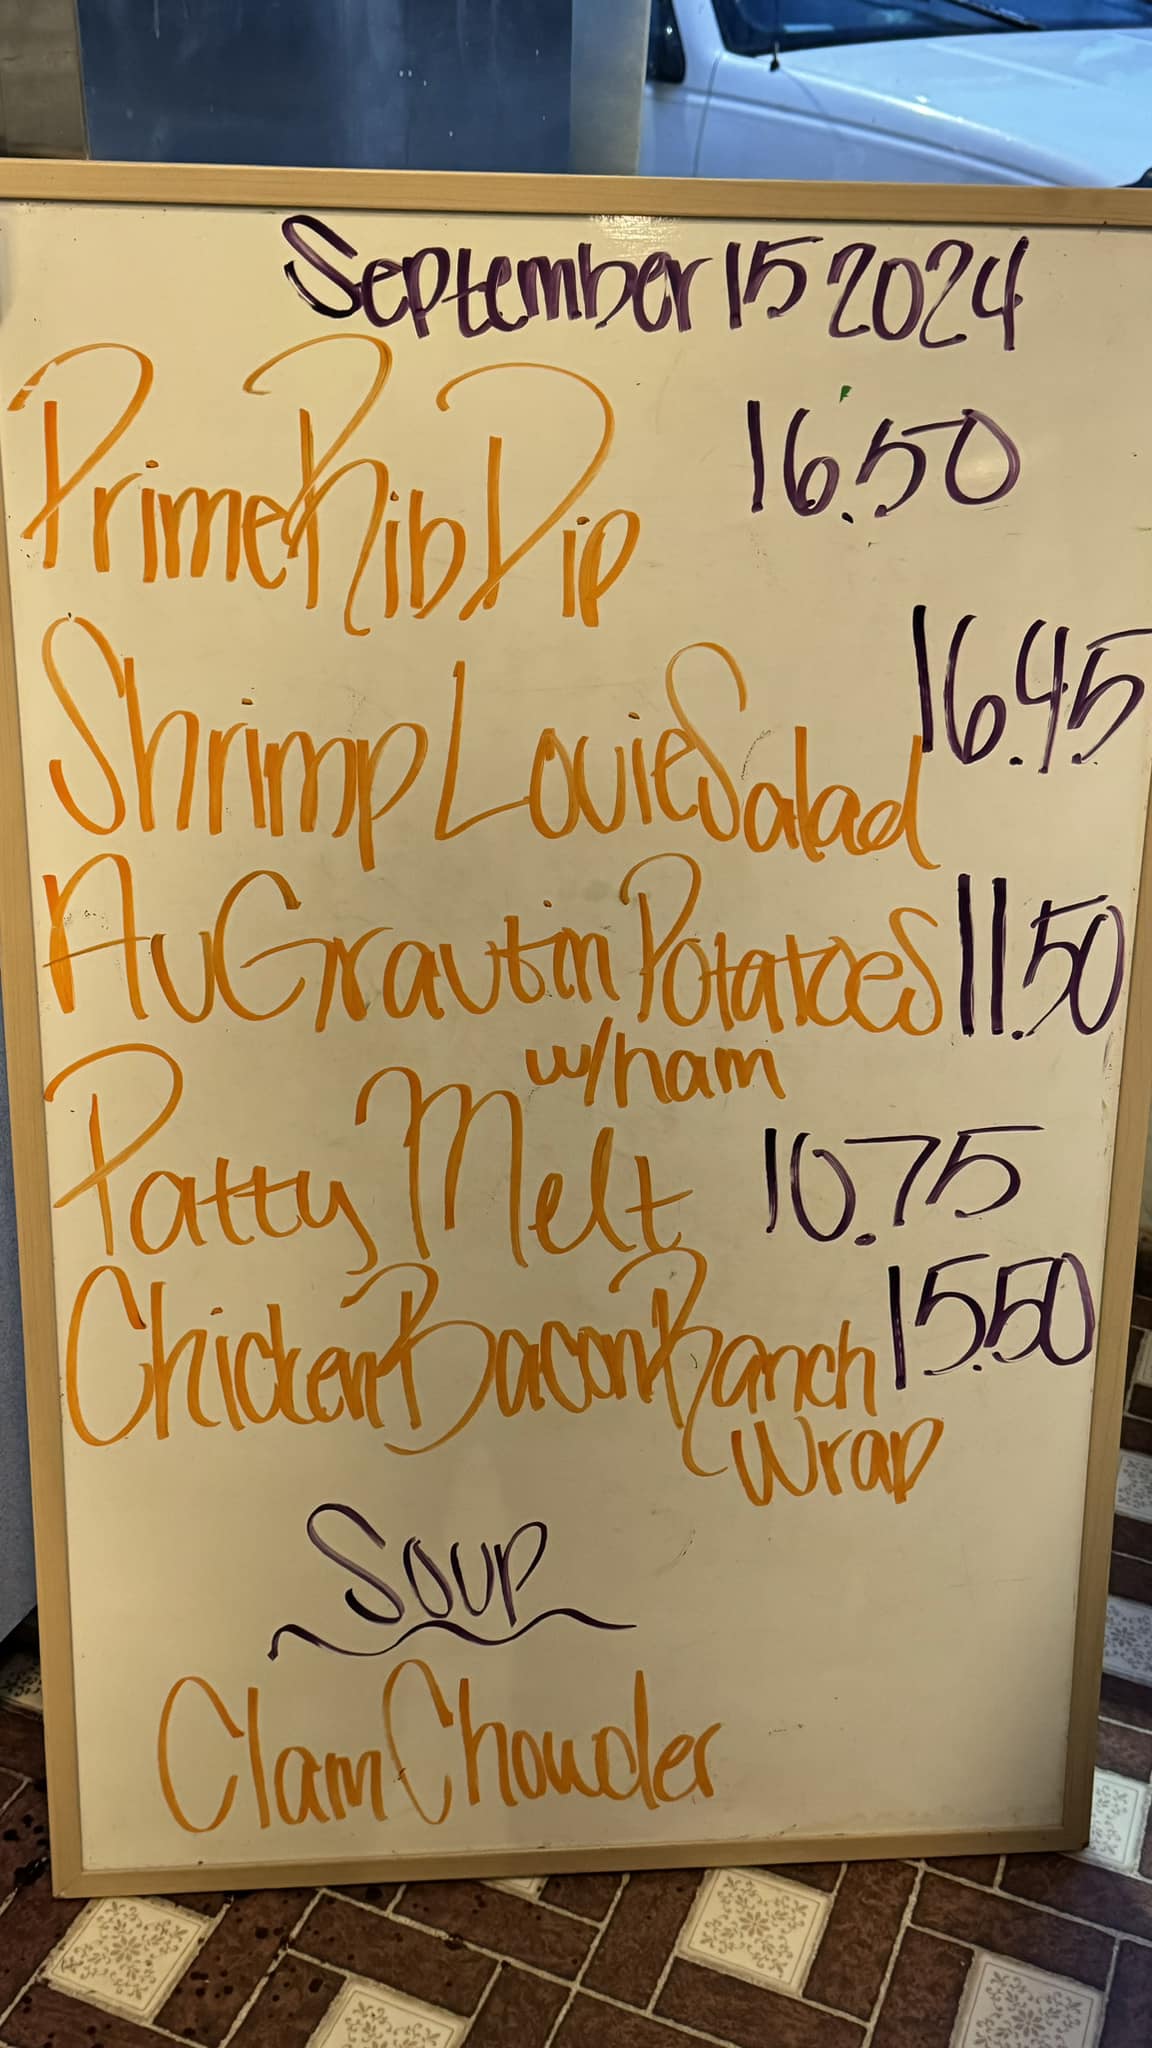 September 15 2024
Prime Rib Dip 16.50
Shrimp Louie Salad 16.45
Au Grautin Potatoes 11.50
w/ham
Patty Melt 10.75
Chicken Bacon Ranch 15.50
Wrap
Soup
Clam Chowder